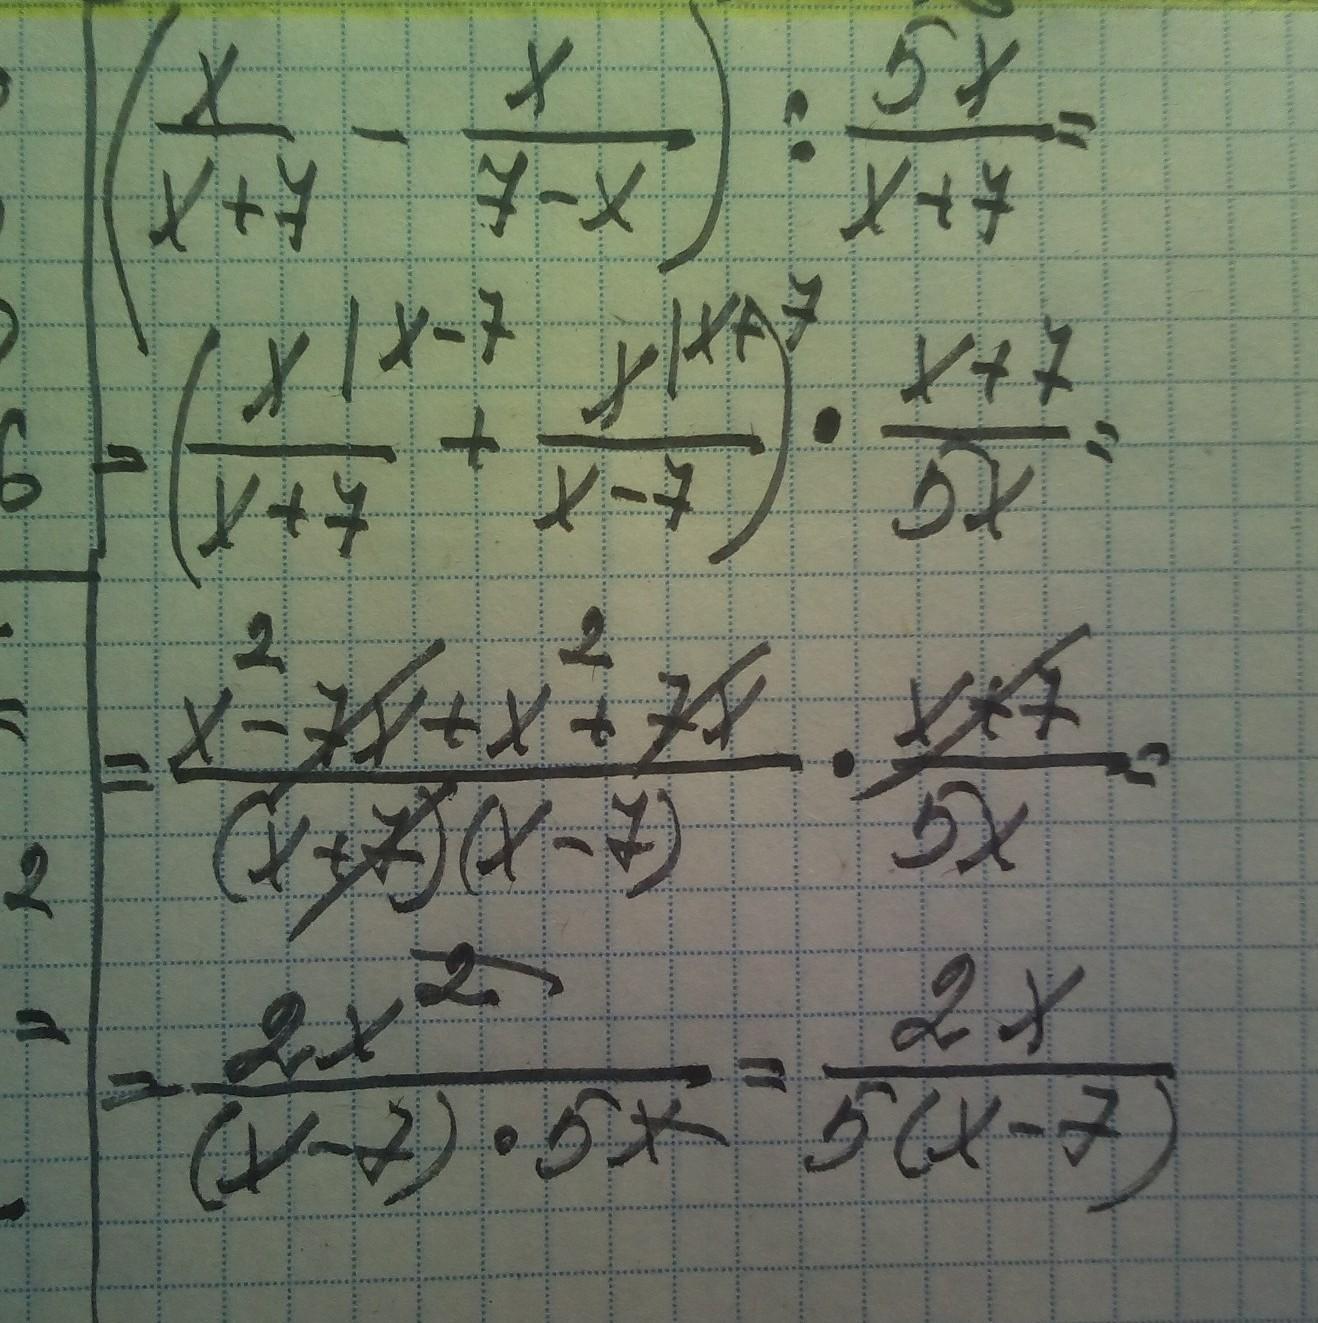 (x/(x+7) - x/(7-x)) : 5x/(x+7) =
= (x|x-7/(x+7) + x|x+7/(x-7)) · (x+7)/5x =
= (x²-7x+x²+7x)/((x+7)(x-7)) · (x+7)/5x =
= 2x²/((x-7)·5x) = 2x/(5(x-7))
6
2
=